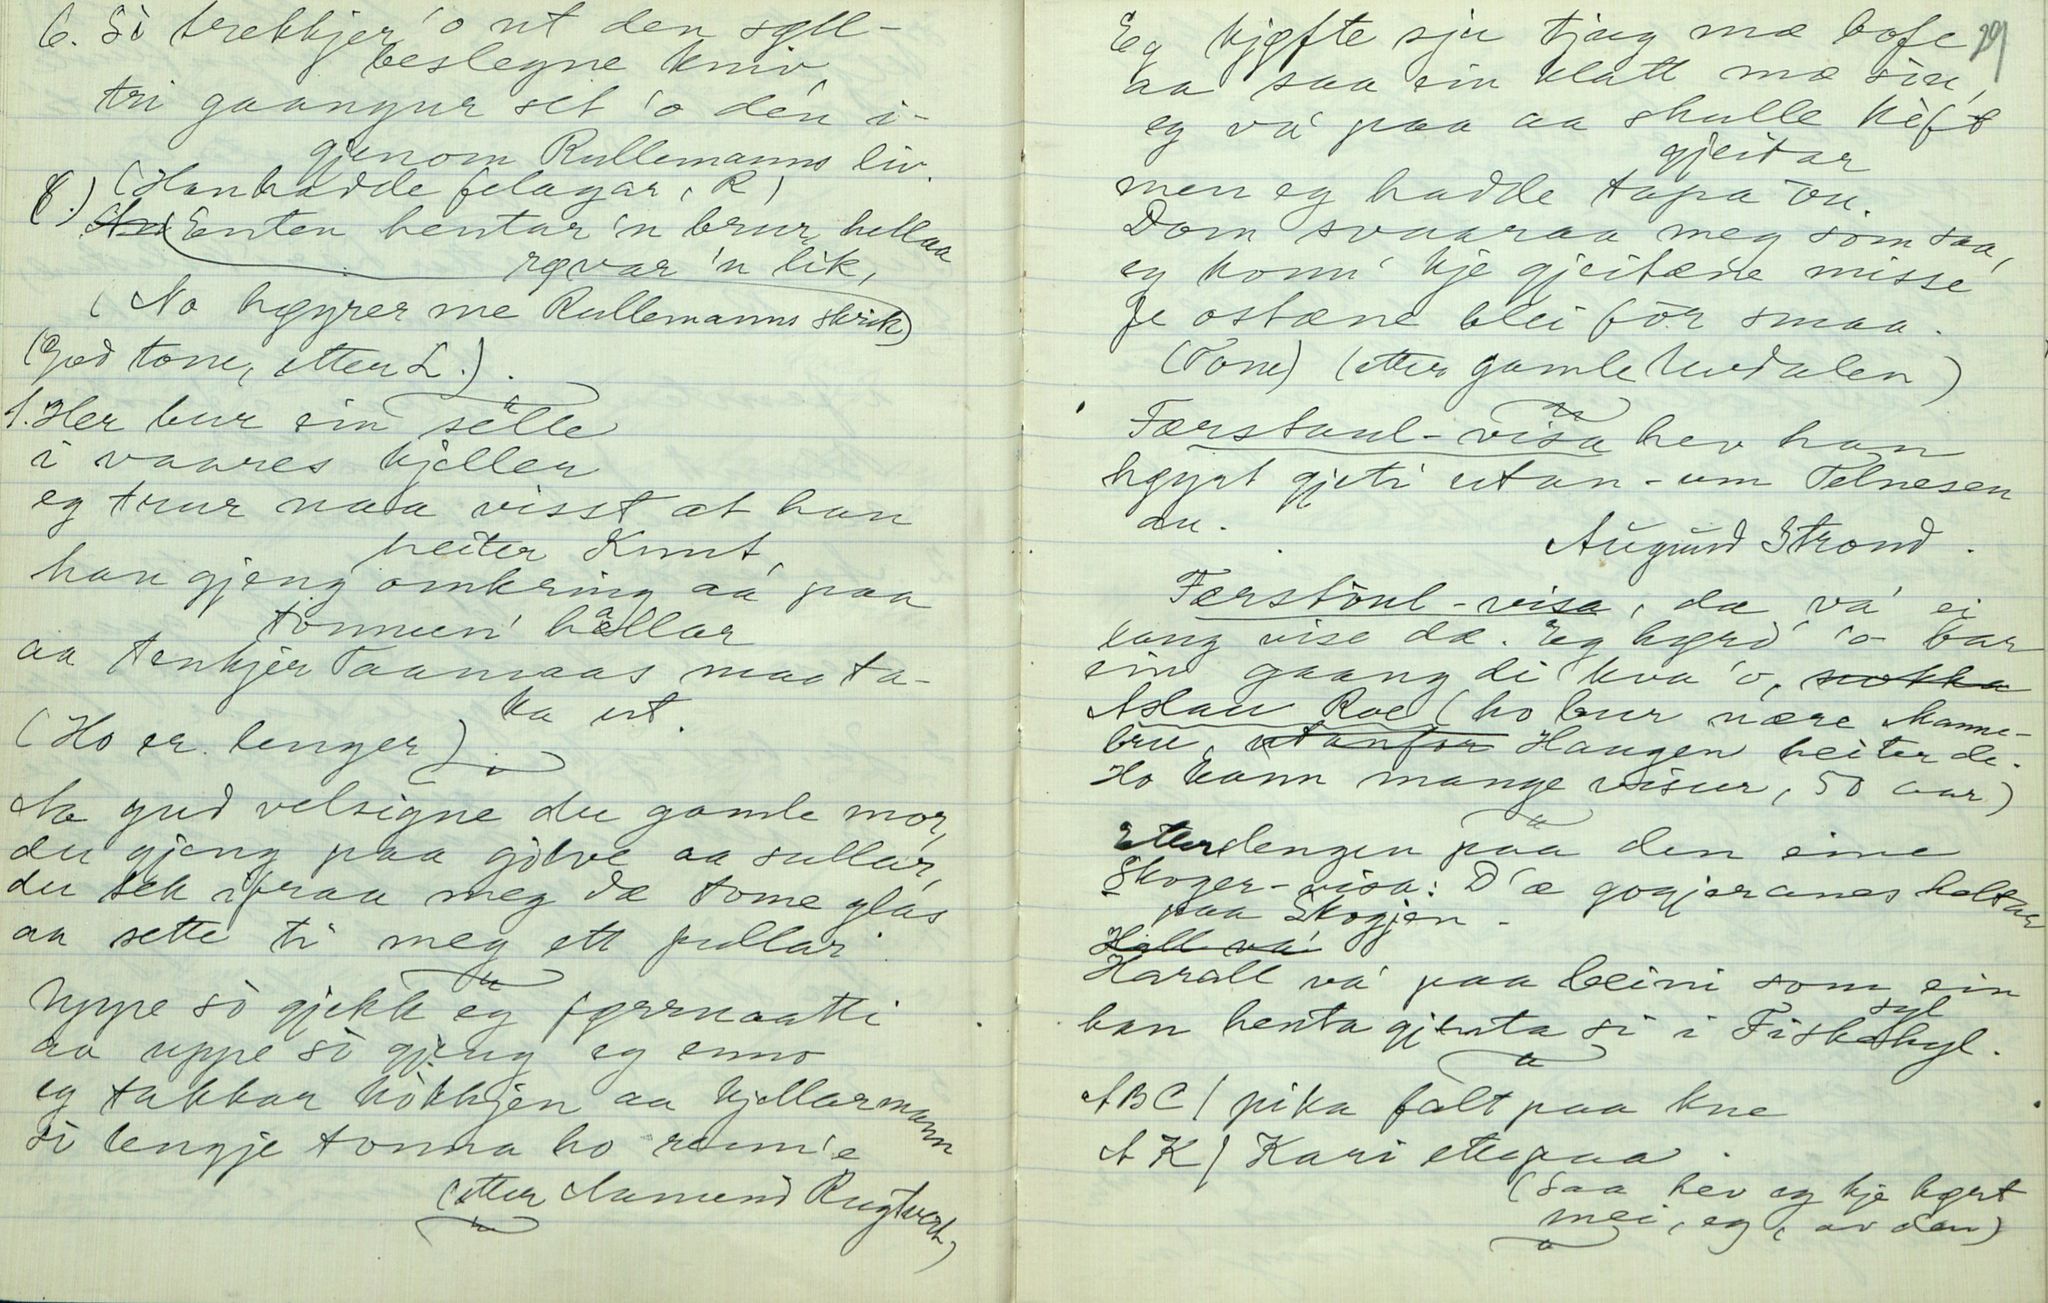 6. Sò trekkjer 'o ut den syll-
beslegne kniv,
tri gaangur set 'o den i-
gjenom Rullemanns liv.
(Han hadde felagar, R,)
8.) Enten hentar 'n brur, hellaa
røvar 'n lik,
(No høyrer me Rullemanns skrik)
(God tone, etter L.).
1. Her bur ein selle
i vaares kjeller
eg trur naa visst at han
heiter Knut,
han gjeng omkring aa' paa
tonneun' hallar
aa tenkjer Taamaas maa ta-
ka ut.
(Ho er lenger).
Na gud velsigne du gamle mor,
du gjeng paa golve aa sullar,
du tek ifraa meg dæ tome glas
aa sette ti meg ett fullar.
Uppe sò gjekk eg fyrrnaatti
aa uppe sò gjeng eg enno
eg takkar kòkkjen aa kjellarmann
sò lengje tonna ho renn'e
(etter Aamund Rugtveit)
29
Eg kjøfte sju tjug mæ bofe
aa saa ein klatt mæ sin,
eg va' paa aa skulle kjeft
gjeitar
men eg hadde tapa òu.
Dom svaaraa meg som saa,
eg konn' kje gjeitæne misse
fe ostæne blei fòr smaa.
(Tone) (etter gamle Uvdalen)
Færstaul-visa hev han
høyrt gjeti utan-um Telnesen
au.
Augund Strond.
Færstòul-visa, dæ va' ei
lang vise dæ. Eg høyrd' 'o bar
ein gaang di kva 'o, nokka
Aslau Roe (ho bur nære Manne-
bru, utanfor Haugen heiter de.
Ho kann mange visur, 50 aar)
Etterlengen paa den eine
Skoger-visa: D'æ gogjeranes haltar
paa Skogjen -
Hall va'
Harall va' paa beini som ein
syl
han henta gjenta si i Fiskekyl.
ABC / pika falt paa kne
AK / Kari ettepaa.
(Saa hev eg kje hørt
mei, eg, av den)